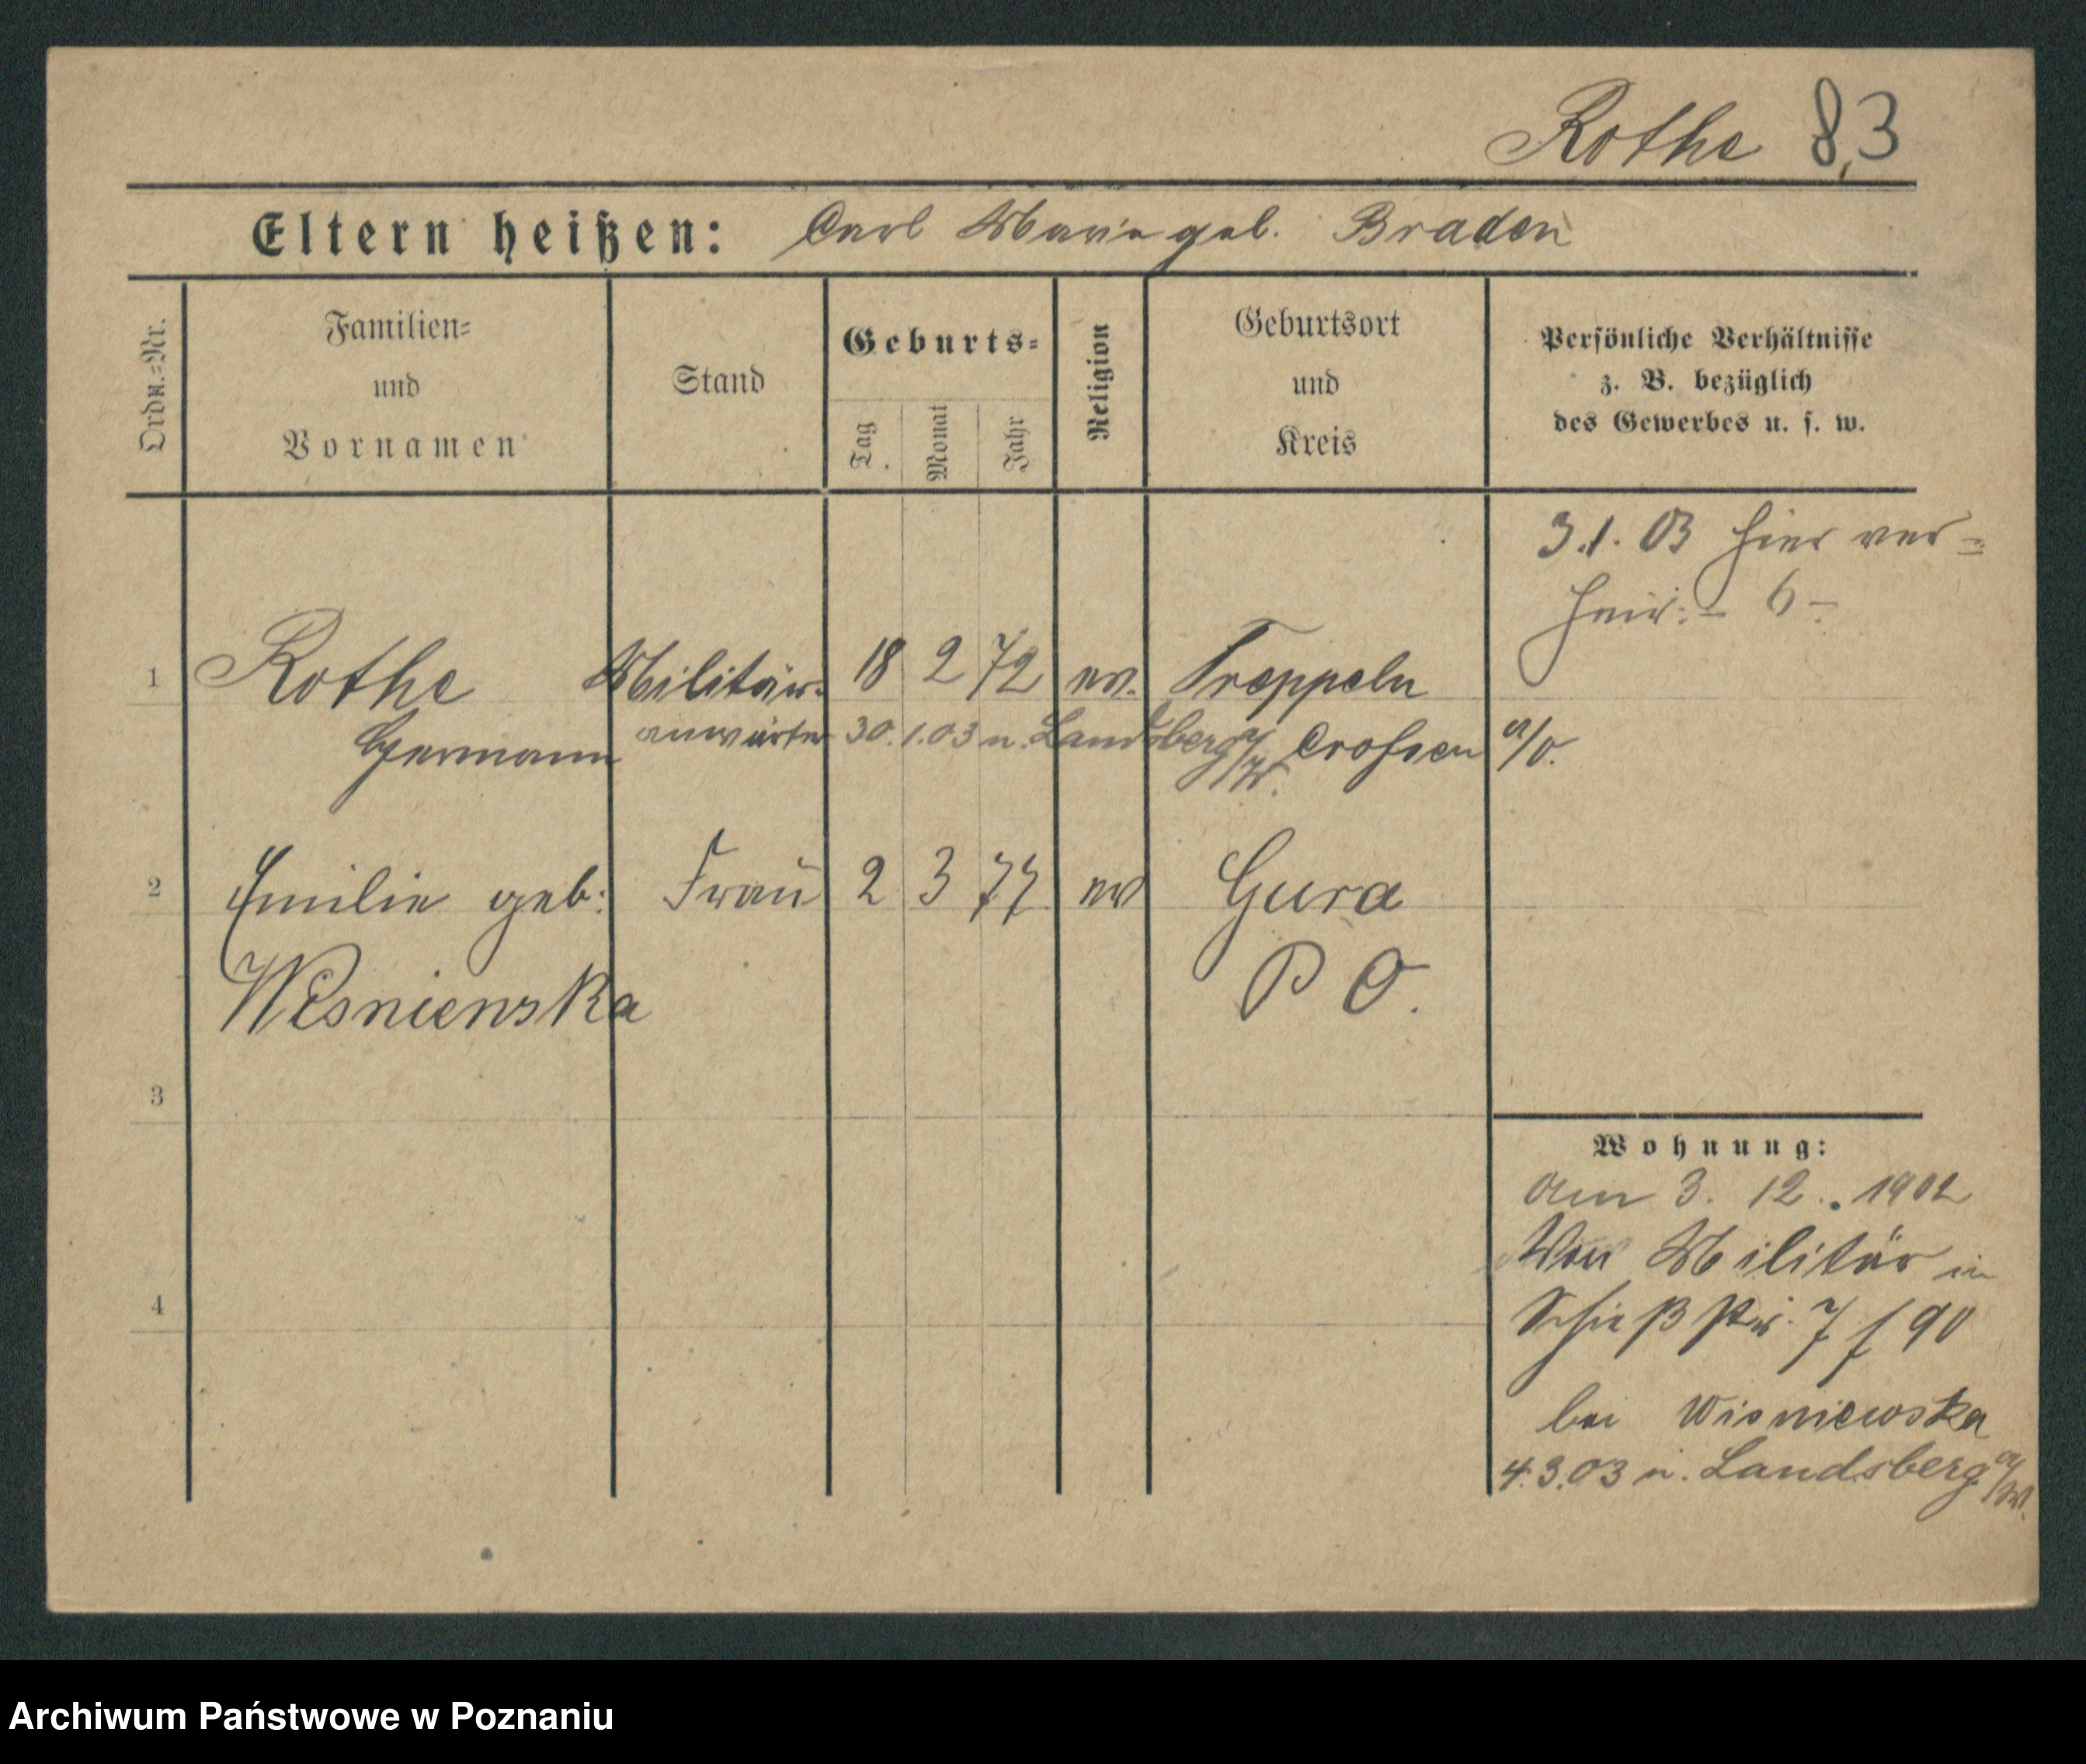 Rothe 83
Eltern heißen: Carl Marie geb. Braden
Ordn.=Nr.
Familien=
und
Vornamen
Stand
Geburts=
Tag
Monat
Jahr
Religion
Geburtsort
und
Kreis
Persönliche Verhältnisse
z. B. bezüglich
des Gewerbes u. s. w.
3.1.03 hier ver=
heir. - 6 -
1 Rothe Militär- 18 2 72 ev. Treppeln
Hermann anwärter 30.1.03 n. Landsberg a/W. Crossen a/O.
2 Emilie geb: Frau 2 3 77 ev Gura
Wisniewska P O.
3
Wohnung:
am 3. 12. 1902
Von Militär in
4
Schießstr. 7 f 90
bei Wisniewska
4.3.03 n. Landsberg a/W.
Archiwum Państwowe w Poznaniu